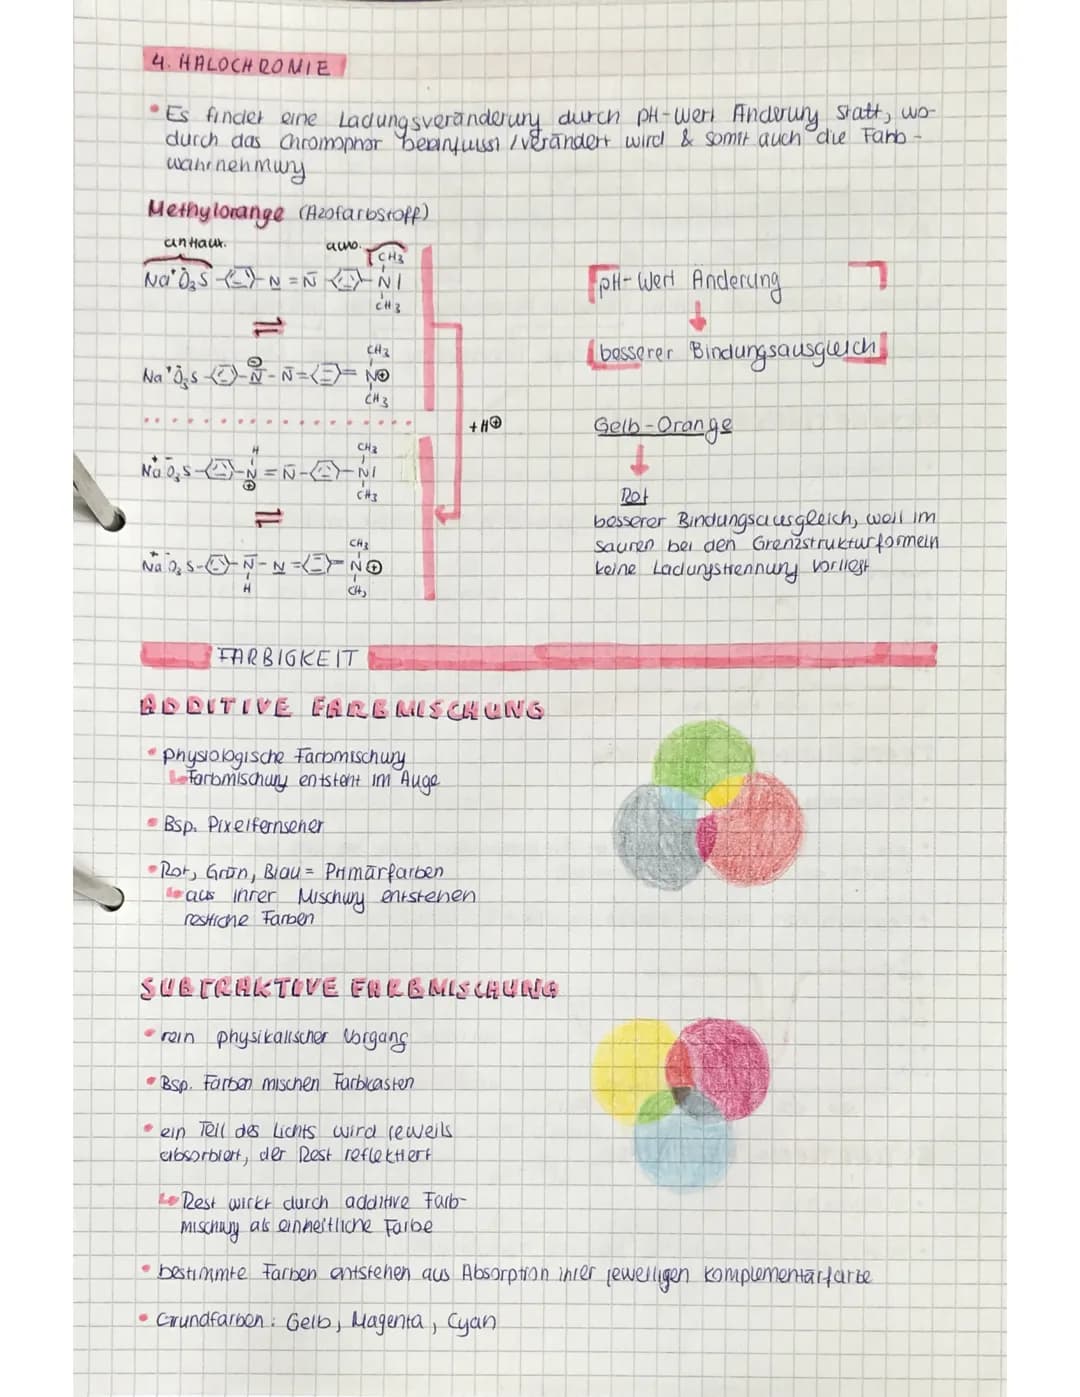 4. HALOCHROMIE
• Es findet eine Ladungsveränderung durch pH-Wert Änderung statt, wo-
durch das Chromophor beeinflusst / verändert wird & somit auch die Farb-
wahrnehmung
Methylorange (Azofarbstoff)
antiaux. auxo.
CH3
Na⁺ Ō₃S - N = N̄ - N|
CH3
⇌
CH3
Na⁺ Ō₃S - N⊖ - N̄ = = N⊕
CH3
+H⊕
H CH3
Na⁺ Ō₃S - N⊕ = N̄ - N|
CH3
⇌
CH3
Na⁺ Ō₃S - N̄ - N = = N⊕
H CH3
pH-Wert Änderung
↓
besserer Bindungsausgleich
Gelb-Orange
↓
Rot
besserer Bindungsausgleich, weil im
sauren bei den Grenzstrukturformeln
keine Ladungstrennung vorliegt
FARBIGKEIT
ADDITIVE FARBMISCHUNG
• physiologische Farbmischung
↳ Farbmischung entsteht im Auge
• Bsp. Pixelfernseher
• Rot, Grün, Blau = Primärfarben
↳ aus ihrer Mischung entstehen
restliche Farben
SUBTRAKTIVE FARBMISCHUNG
• rein physikalischer Vorgang
• Bsp. Farben mischen Farbkasten
• ein Teil des Lichts wird jeweils
absorbiert, der Rest reflektiert
↳ Rest wirkt durch additive Farb-
mischung als einheitliche Farbe
• bestimmte Farben entstehen aus Absorption ihrer jeweiligen Komplementärfarbe
• Grundfarben: Gelb, Magenta, Cyan